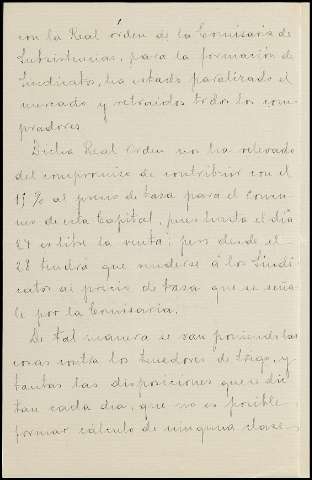 con la Real órden de la Comisaria de
Subsistencias, para la formación de
Sindicatos, ha estado paralizado el
mercado y retraidos todos los com-
pradores.
Dicha Real orden nos ha relevado
del compromiso de contribuir con el
15% al precio de tasa para el consu-
mo de esta Capital, pues hasta el dia
27 es libre la venta; pero desde el
28 tendrá que venderse á los Sindi-
catos al precio de tasa que se seña-
le por la Comisaria.
De tal manera se van poniendo las
cosas contra los tenedores de trigo, y
tantas las disposiciones que se dic-
tan cada dia, que no es posible
formar cálculo de ninguna clase